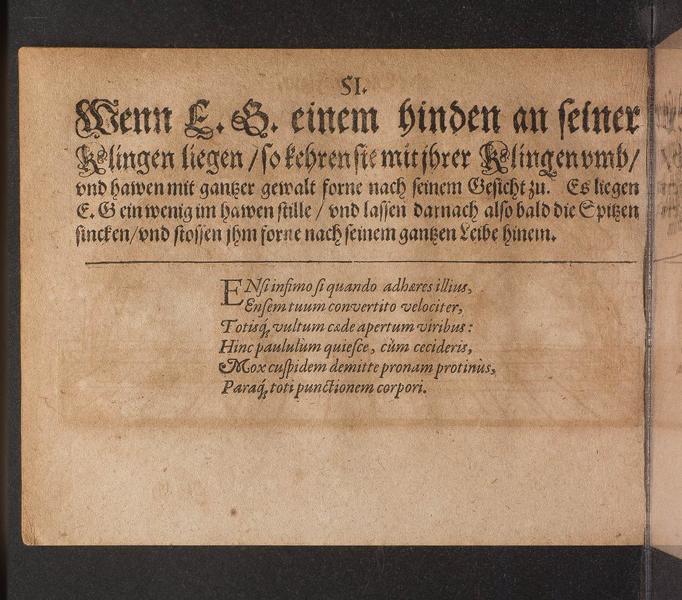 51.
Wenn E. G. einem hinden an seiner
Klingen liegen / so kehren sie mit jhrer Klingen vmb /
vnd hawen mit gantzer gewalt forne nach seinem Gesicht zu. Es liegen
E. G ein wenig im hawen stille / vnd lassen darnach also bald die Spitzen
sincken / vnd stossen jhm forne nach seinem gantzen Leibe hinein.
ENsi infimo si quando adhæres illius,
Ensem tuum convertito velociter,
Totisq́; vultum cæde apertum viribus:
Hinc paululùm quiesce, cùm cecideris,
Mox cuspidem demitte pronam protinùs,
Paraq́; toti punctionem corpori.